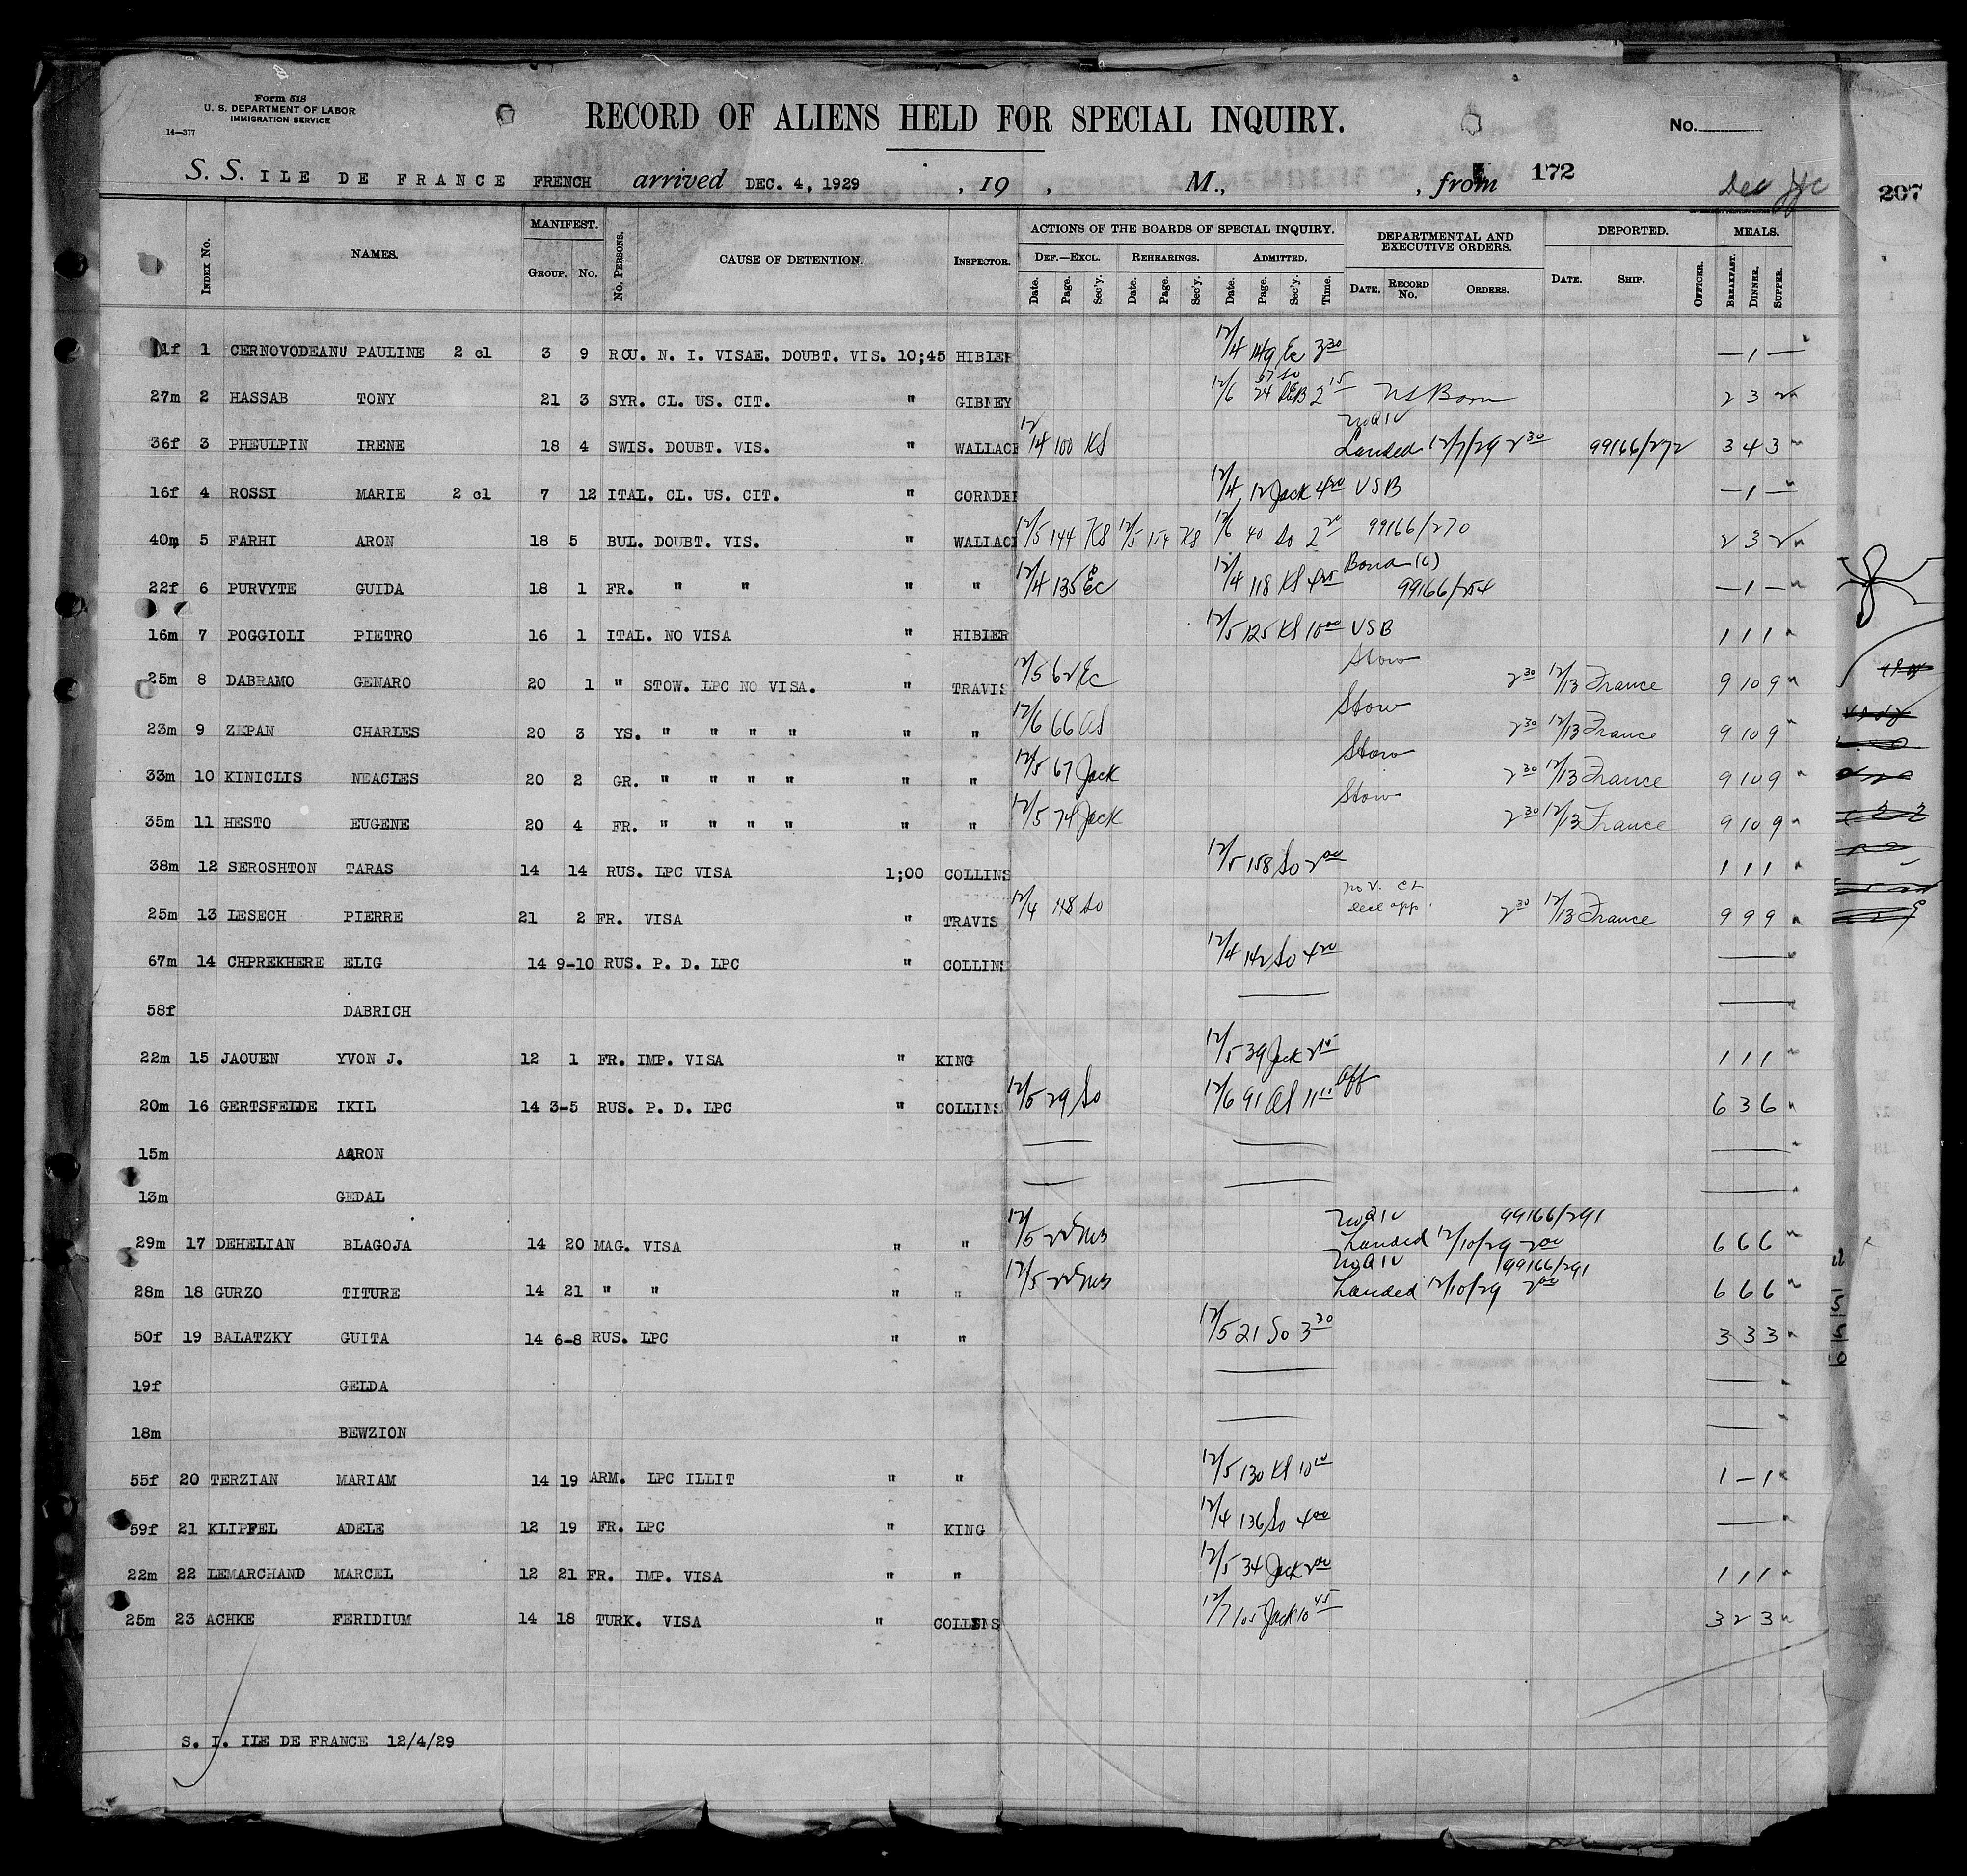 Form 518
U. S. DEPARTMENT OF LABOR
IMMIGRATION SERVICE
14—377
RECORD OF ALIENS HELD FOR SPECIAL INQUIRY.
No.
S. S. ILE DE FRANCE FRENCH arrived DEC. 4, 1929 , 19 , M., , from 172
207
INDEX No. NAMES. MANIFEST. GROUP. No. No. PERSONS. CAUSE OF DETENTION. INSPECTOR. ACTIONS OF THE BOARDS OF SPECIAL INQUIRY. DEF.—EXCL. Date. Page. Sec'y. REHEARINGS. Date. Page. Sec'y. ADMITTED. Date. Page. Sec'y. Time. DEPARTMENTAL AND EXECUTIVE ORDERS. DATE. RECORD No. ORDERS. DEPORTED. DATE. SHIP. OFFICER. MEALS. BREAKFAST. DINNER. SUPPER.
1f 1 CERNOVODEANU PAULINE 2 cl 3 9 ROU. N. I. VISAE. DOUBT. VIS. 10;45 HIBIER 12/4 149 Ec 3 30 — 1 —
27m 2 HASSAB TONY 21 3 SYR. CL. US. CIT. " GIBNEY 12/6 24 2 15 US Born 2 3 2
36f 3 PHEULPIN IRENE 18 4 SWIS. DOUBT. VIS. " WALLACE 12/4 100 KS Landed 12/7/29 2 30 99166/272 3 4 3
16f 4 ROSSI MARIE 2 cl 7 12 ITAL. CL. US. CIT. " 12/4 12 Jack 4 20 USB — 1 —
40m 5 FARHI ARON 18 5 BUL. DOUBT. VIS. " WALLACE 12/5 144 KS 12/5 154 KS 12/6 40 So 2 20 99166/270 2 3 2
22f 6 PURVYTE GUIDA 18 1 FR. " " " " 12/4 135 Ec 12/4 118 KS 4 25 Bond (C) 99166/254 — 1 —
16m 7 POGGIOLI PIETRO 16 1 ITAL. NO VISA " HIBIER 12/5 125 KS 10 00 USB 1 1 1
25m 8 DABRAMO GENARO 20 1 " STOW. LPC NO VISA. " TRAVIS 12/5 62 Ec Stow 2 30 12/13 France 9 10 9
23m 9 ZEPAN CHARLES 20 3 YS. " " " " " " 12/6 66 AS Stow 2 30 12/13 France 9 10 9
33m 10 KINICLIS NEACLES 20 2 GR. " " " " " " 12/5 67 Jack Stow 2 30 12/13 France 9 10 9
35m 11 HESTO EUGENE 20 4 FR. " " " " " " 12/5 74 Jack Stow 2 30 12/13 France 9 10 9
38m 12 SEROSHTON TARAS 14 14 RUS. LPC VISA 1;00 COLLINS 12/5 158 So 2 00 1 1 1
25m 13 LESECH PIERRE 21 2 FR. VISA " TRAVIS 12/4 148 So 2 30 12/13 France 9 9 9
67m 14 CHPREKHERE ELIG 14 9-10 RUS. P. D. LPC " COLLINS 12/4 142 So 4 20 —
58f DABRICH — —
22m 15 JAOUEN YVON J. 12 1 FR. IMP. VISA " KING 12/5 39 Jack 2 15 1 1 1
20m 16 GERTSFELDE IKIL 14 3-5 RUS. P. D. LPC " COLLINS 12/5 29 So 12/6 91 AS 11 11 Aff 6 3 6
15m AARON — — —
13m GEDAL — — —
29m 17 DEHELIAN BLAGOJA 14 20 MAG. VISA " " 12/5 22 99166/291 Landed 12/10/29 2 00 6 6 6
28m 18 GURZO TITURE 14 21 " " " " 12/5 22 99166/291 Landed 12/10/29 2 00 6 6 6
50f 19 BALATZKY GUITA 14 6-8 RUS. LPC " " 12/5 21 So 3 30 3 3 3
19f GELDA — —
18m BEWZION — —
55f 20 TERZIAN MARIAM 14 19 ARM. LPC ILLIT " " 12/5 130 KS 10 10 1 — 1
59f 21 KLIPFEL ADELE 12 19 FR. LPC " KING 12/4 136 So 4 00 —
22m 22 LEMARCHAND MARCEL 12 21 FR. IMP. VISA " " 12/5 34 Jack 2 00 1 1 1
25m 23 ACHKE FERIDIUM 14 18 TURK. VISA " COLLINS 12/7 105 Jack 10 45 3 2 3
S. I. ILE DE FRANCE 12/4/29